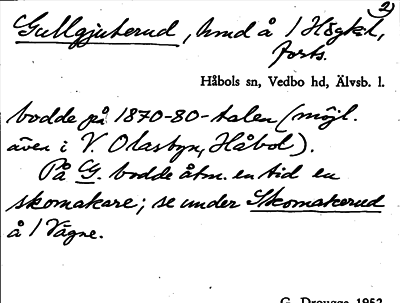 2)
Gullgjuterud, hmd å 1 Högkil,
forts.
Håbols sn, Vedbo hd, Älvsb. l.
bodde på 1870-80-talen (möjl.
även i V. Olasbyn, Håbol).
På G. bodde åtm. en tid en
skomakare; se under Skomakerud
å 1 Vägne.
G. Drougge 1952